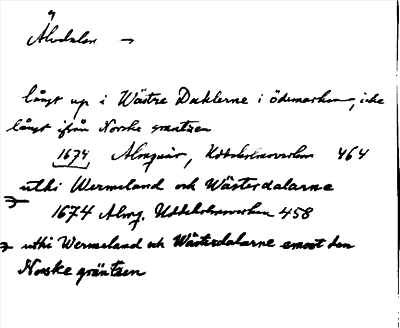 Älvdalen →
långt up i Wästre Dahlerne i ödemarken, icke
långt ifrån Norske grantzen
1674 Almquist, 464
uthi Wermeland och Wästerdalarne
1674 Almq. 458
uthi Wermeland och Wästerdalarne emoot den
Norske gräntzen